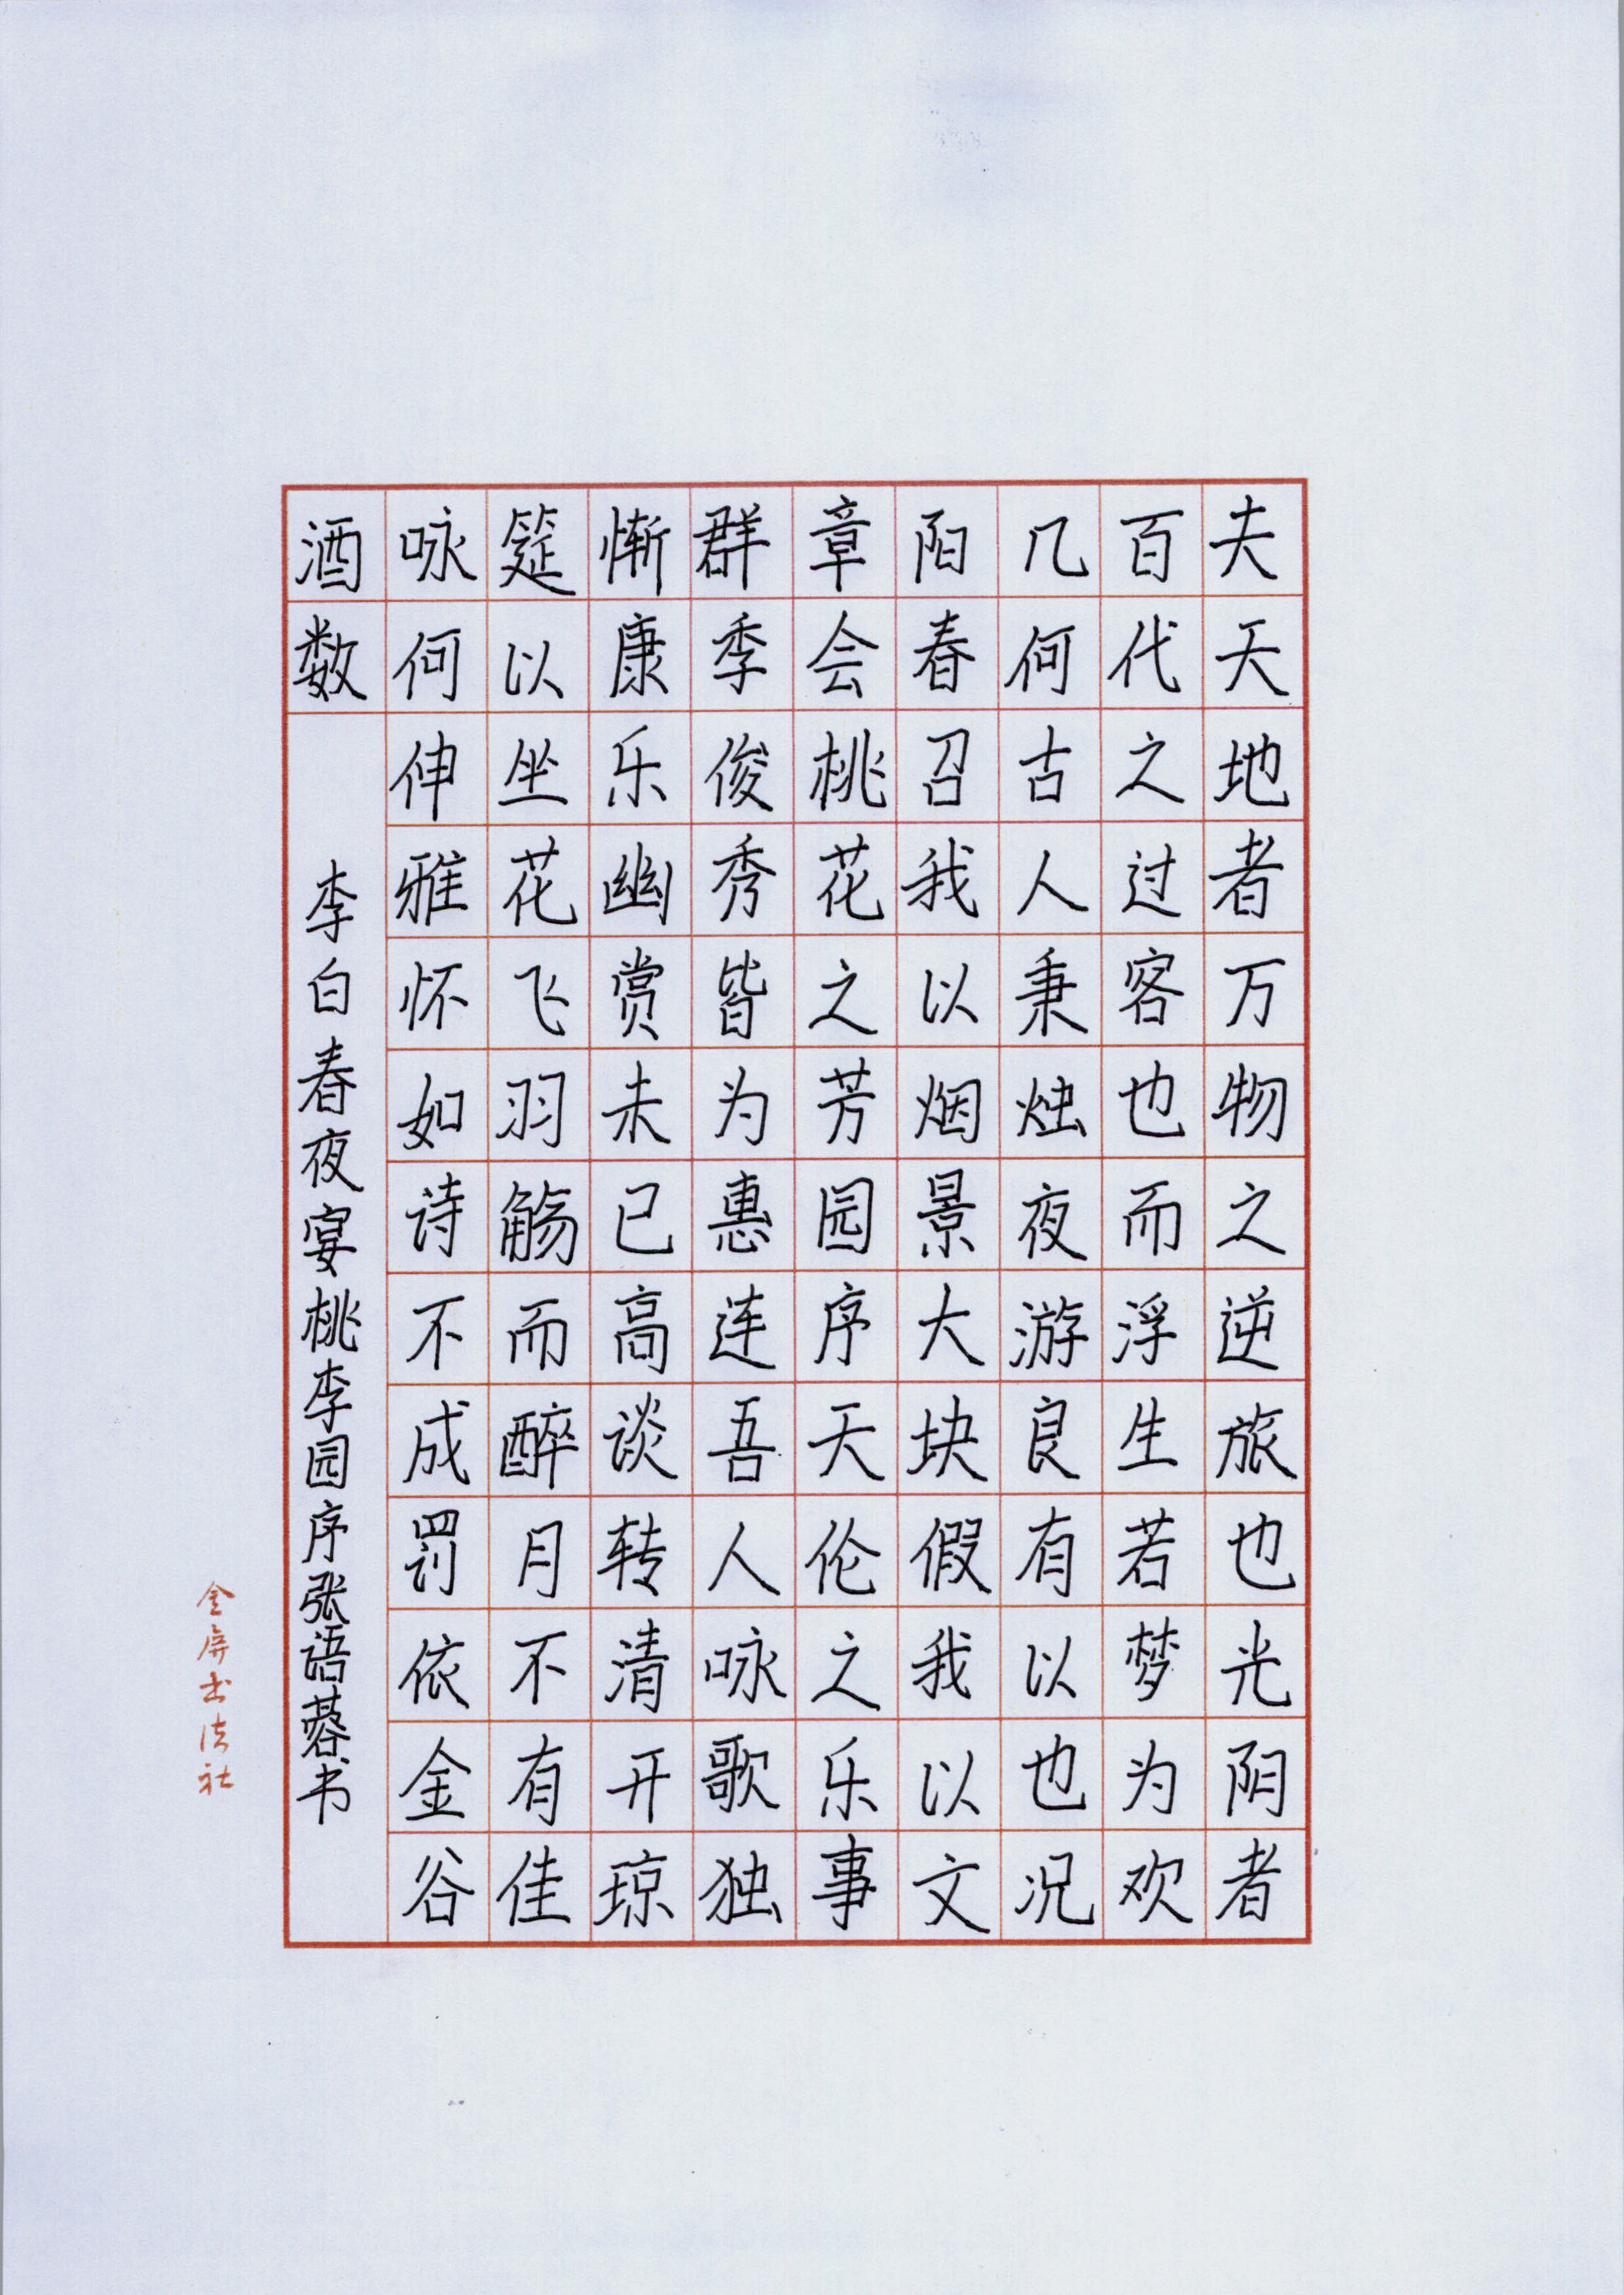 夫天地者万物之逆旅也光阳者
百代之过客也而浮生若梦为欢
几何古人秉烛夜游良有以也况
阳春召我以烟景大块假我以文
章会桃花之芳园序天伦之乐事
群季俊秀皆为惠连吾人咏歌独
惭康乐幽赏未已高谈转清开琼
筵以坐花飞羽觞而醉月不有佳
咏何伸雅怀如诗不成罚依金谷
酒数
李白春夜宴桃李园序张语蓉书
金屏书法社